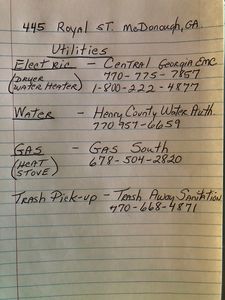 445 Royal ST. McDonough, GA.
Utilities
Electric - Central Georgia EMC
(Dryer 770-775-7857
Water Heater) 1-800-222-4877
Water - Henry County Water Auth.
770 957-6659
Gas - Gas South
(Heat 678-504-2820
Stove)
Trash Pick-up - Trash Away Sanitation
770-668-4871